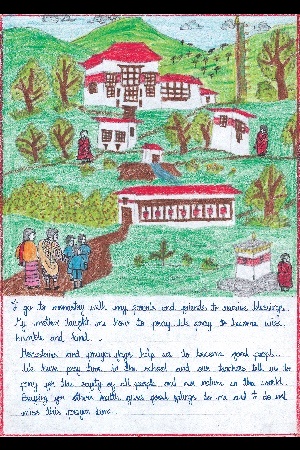 I go to monastry with my parents and friends to receive blessings.
My mother taught me how to pray. We pray to become wise,
humble and kind.
Monasteries and prayer flags help us to become good people.
We have pray time in the school and our teachers tell us to
pray for the safety of all people and our nature in the world.
Praying for others health gives good feelings to me and I do not
miss this prayer time.